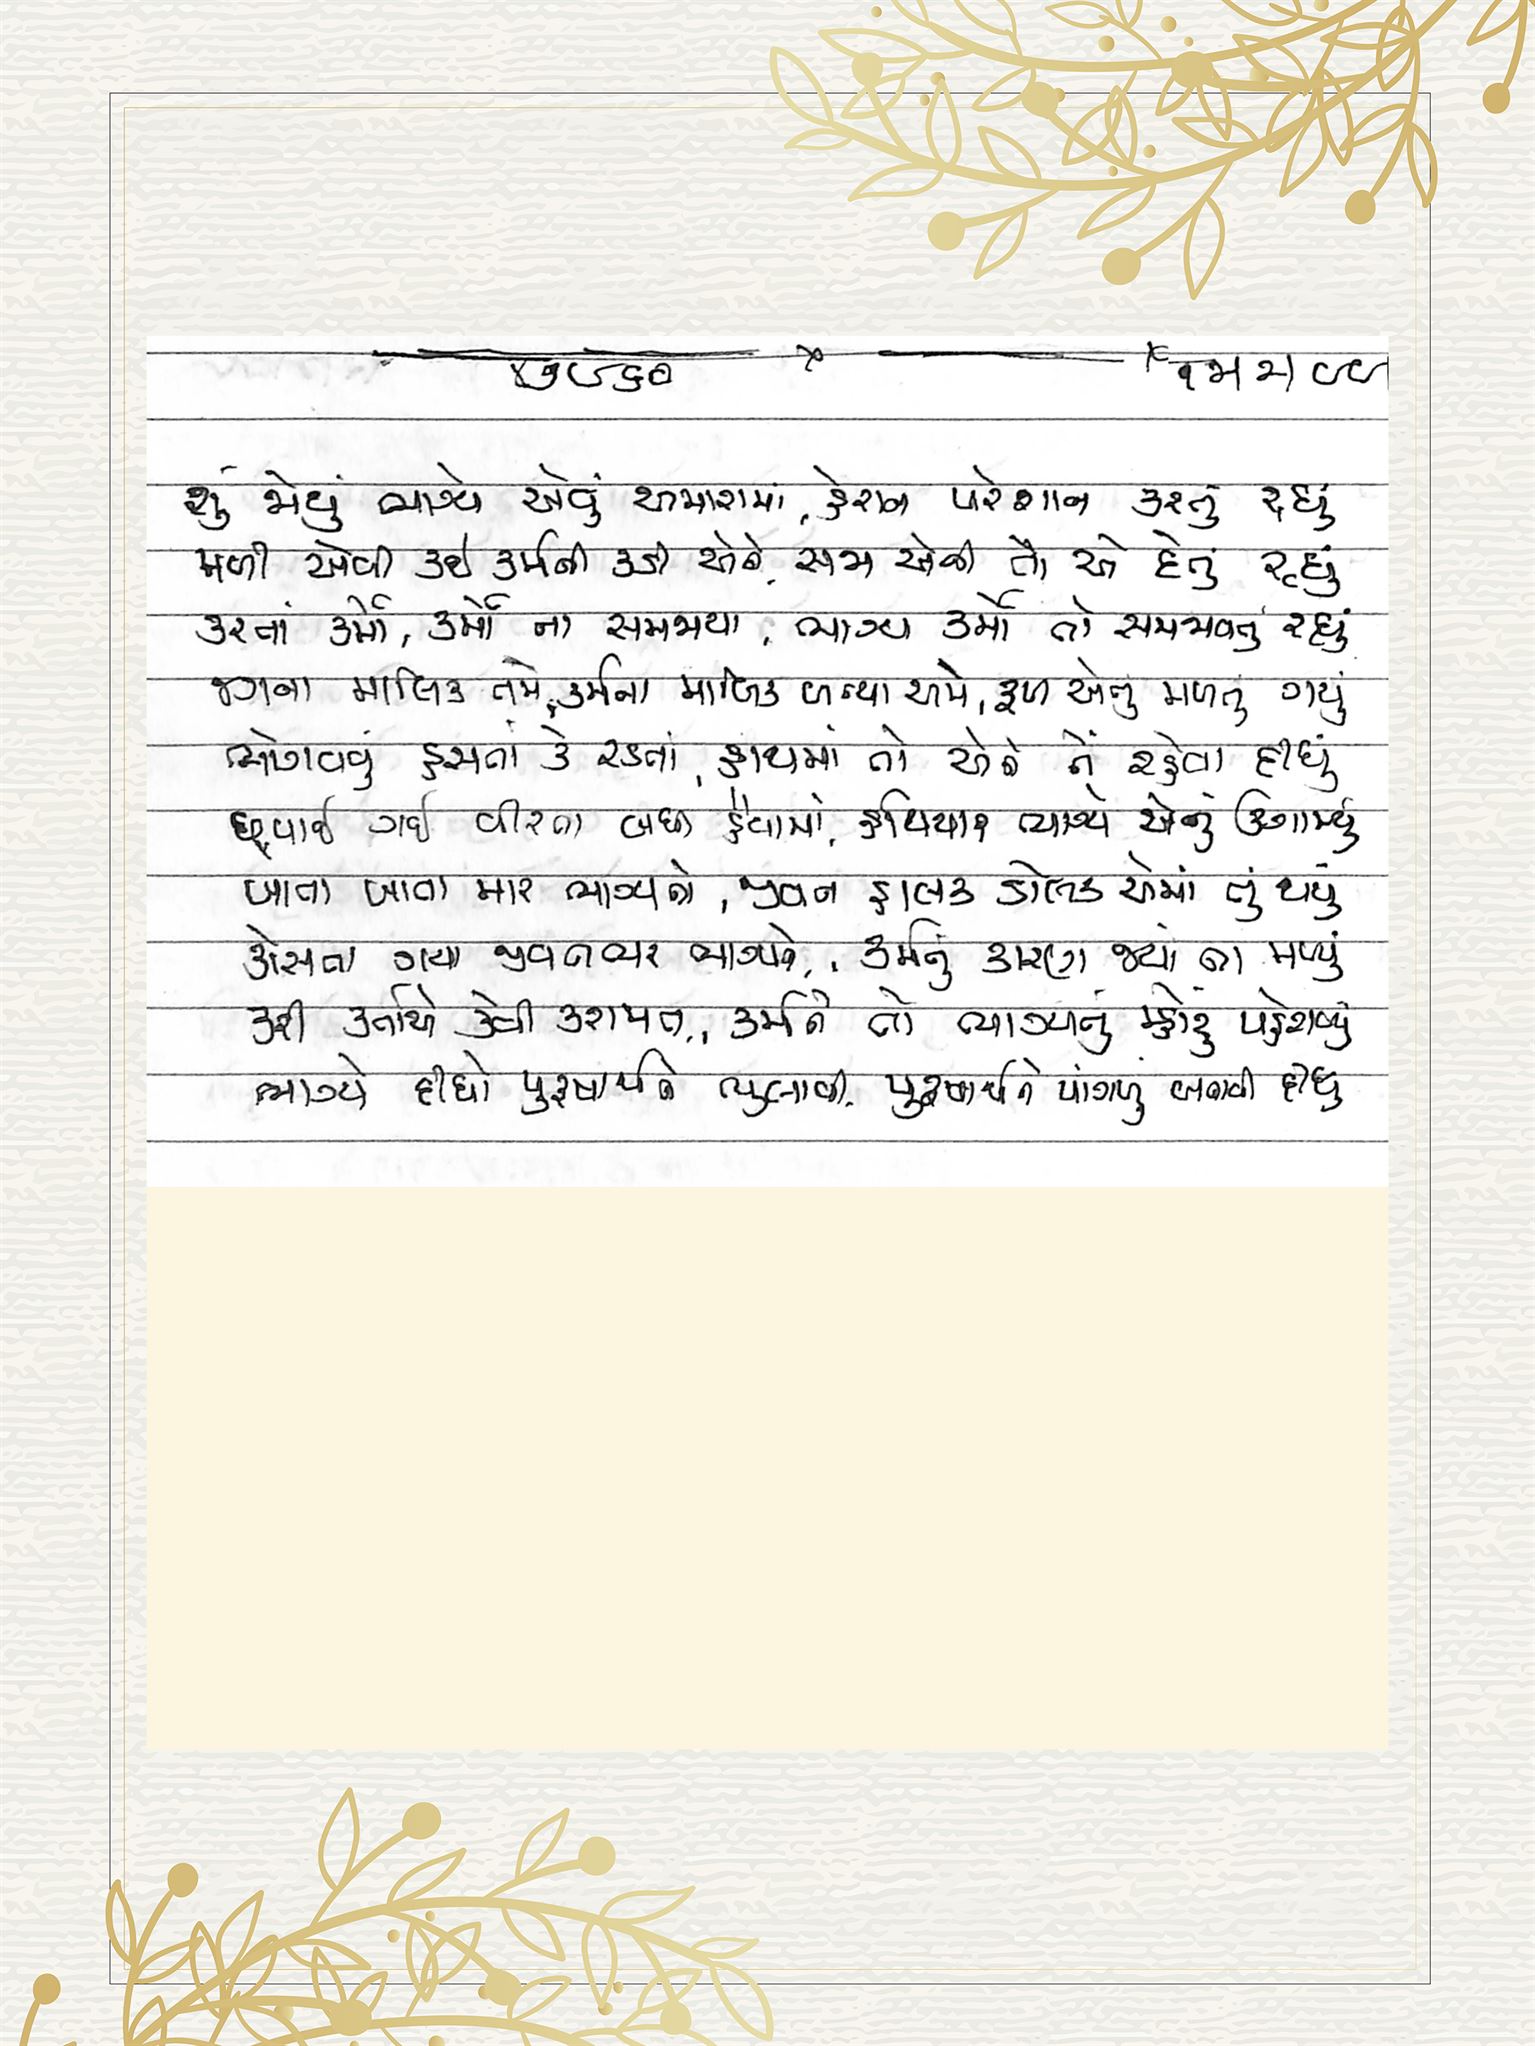 ૪૭૮૬૦
શું જોયું ભાગ્યે એવું અમારામાં, હેરાન પરેશાન કરતું રહ્યું
મળી એવી કઈ કર્મની કડી એને, સજા એવી તો એ દેતું રહ્યું
કરતાં કર્મો, કર્મો ના સમજાયા, ભાગ્ય કર્મો તો સમજાવતું રહ્યું
જગના માલિક તમે, કર્મના માલિક બન્યા અમે, ફળ એનું મળતું ગયું
ભોગવવું હસતાં કે રડતાં, હાથમાં તો એને તેં રહેવા દીધું
ઘૂ્વાઈ ગઈ વીરતા બધી હૈવામાં, હથિયાર ભાગ્યે એનું ઉગામ્યું
ખાતા ખાતા માર ભાગ્યનો, જીવન હાલક ડોલક એમાં તું થયું
કોસતા ગયા જીવનભર ભાગ્યને, કર્મનું કારણ જ્યાં ના મળ્યું
કરી કર્તાએ કેવી કરામત, કર્મને તો ભાગ્યનું મ્હોરું પહેરાવ્યું
ભાગ્યે દીધો પુરુષાર્થને ભુલાવી, પુરુષાર્થને પાંગળું બનાવી દીધું